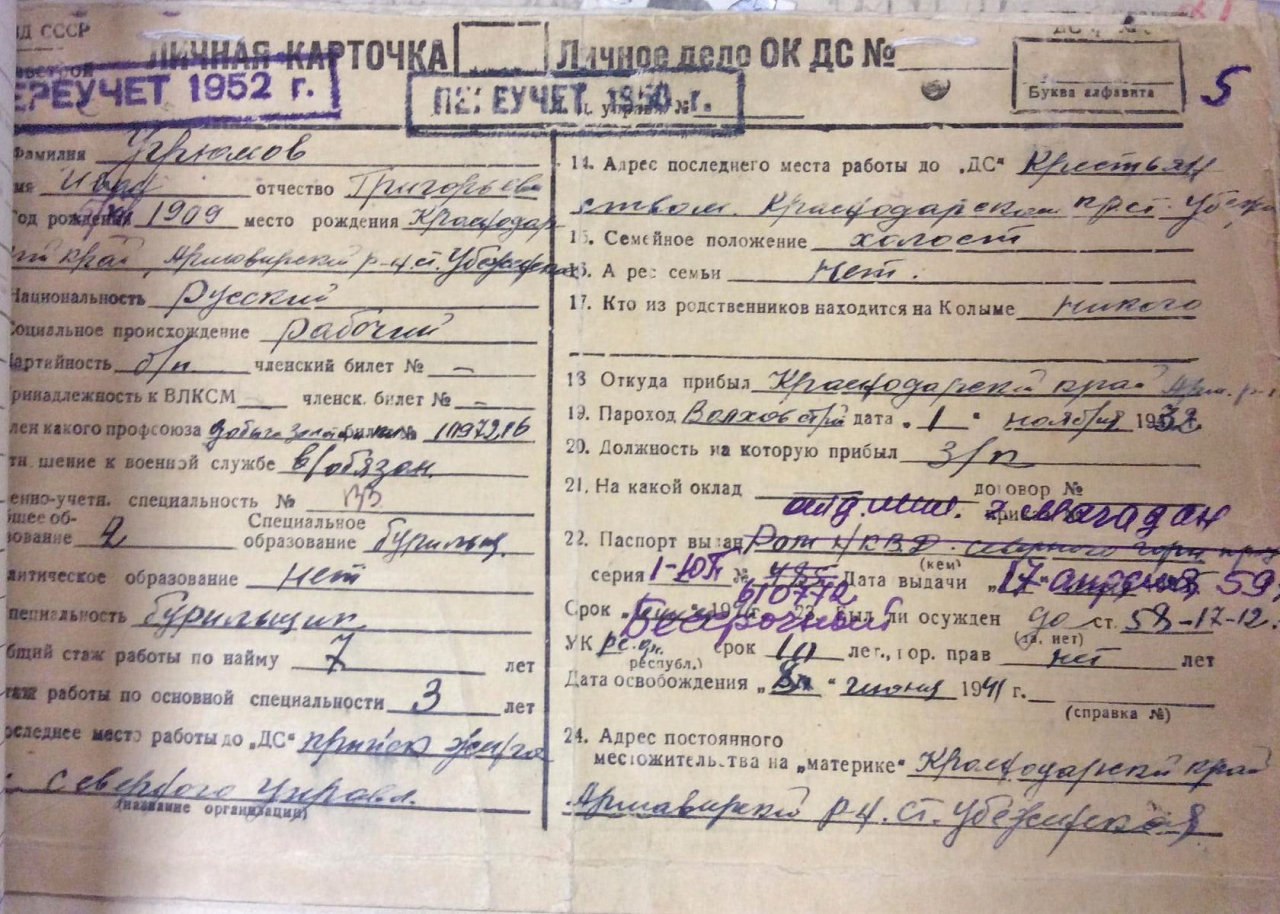 ВД СССР
ЛИЧНАЯ КАРТОЧКА
ЕРЕУЧЕТ 1952 г.
Личное дело ОК ДС №
ПЕРЕУЧЕТ 1950 г.
Буква алфавита
5
Фамилия Угрюмов
мя Иван отчество Григорьев
Год рождения 1909 место рождения Краснодар
ский край, Армавирский р-н, ст. Убеженская
Национальность русский
Социальное происхождение рабочий
Партийность б/п членский билет № —
ринадлежность к ВЛКСМ — членск. билет № —
лен какого профсоюза добычи золота билет № 1197216
тношение к военной службе в/обязан.
енно-учетн. специальность №
бщее об-
зование 2 Специальное образование бурильщ.
литическое образование нет
пециальность бурильщик
бщий стаж работы по найму 7 лет
таж работы по основной специальности 3 лет
оследнее место работы до „ДС“ прииск
Северного Управл.
(название организации)
14. Адрес последнего места работы до „ДС“ Крестьян
ством. Краснодарском ст. Убеж
15. Семейное положение холост
16. Адрес семьи Нет.
17. Кто из родственников находится на Колыме никого
18 Откуда прибыл Краснодарский край Арм. р-н
19. Пароход Волховстрой дата „1“ ноября 1932
20. Должность на которую прибыл з/к
21. На какой оклад договор №
отд. мил. г. Магадан
22. Паспорт выдан Рот НКВД. северного горн
(кем)
серия 1-ЮП № 610772 Дата выдачи „17“ 59
Срок Бессрочный 23. Был ли осужден да ст. 58-17-12.
(да, нет)
УК срок 10 лет., пор. прав нет лет
республ.)
Дата освобождения июня 1941 г.
(справка №)
24. Адрес постоянного
местожительства на „материке“ Краснодарский край
Армавирский р-н. ст. Убеженская